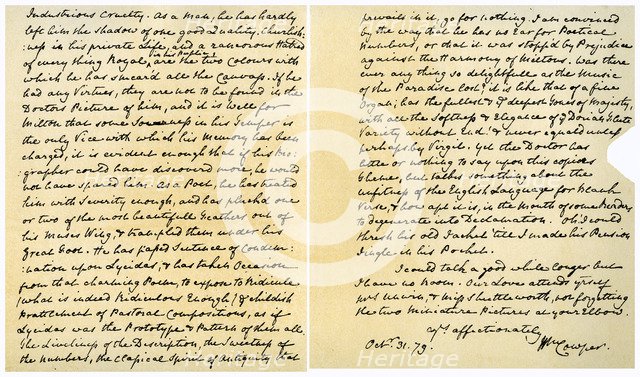 Industrious Cruelty. As a Man, he has hardly
left him the Shadow of one good Quality. Churlish:
:ness in his private Life, and a rancorous Hatred
of every thing Royal in his Public, are the two Colours with
which he has smeared all the Canvass. If he
had any Virtues, they are not to be found in the
Doctors Picture of him, and it is well for
Milton that some Sourness in his Temper is
the only Vice with which his Memory has been
charged, it is evident enough that if his Bio:
:grapher could have discovered more, he would
not have spared him. As a Poet, he has treated
him with Severity enough, and has pluck'd one
or two of the most beautifull Feathers out of
his Muses Wing, & trampled them under his
Great Foot. He has passed Sentence of Condem:
:nation upon Lycidas, & has taken Occasion
from that charming Poem, to expose to Ridicule
(what is indeed Ridiculous Enough) & childish
Prattlement of Pastoral Compositions, as if
Lycidas was the Prototype & Pattern of them all.
The Liveliness of the Description, the Sweetness of
the Numbers, the Classical Spirit of Antiquity that
prevails in it, go for Nothing. I am convinced
by the way that he has no Ear for Poetical
Numbers, or that it was stopp'd by Prejudice
against the Harmony of Miltons. Was there
ever any thing so delightfull as the Music
of the Paradise Lost? it is like that of a fine
Organ; has the fullest & ye deepest Tones of Majesty,
with all the Softness & Elegance of ye Dorian Flute.
Variety without End! & never equal'd unless
perhaps by Virgil. Yet the Doctor has
little or nothing to say upon this copious
Theme, but talks something about the
unfitness of the English Language for Blank
Verse, & how apt it is, in the Mouth of some Readers
to degenerate into Declamation. Oh! I could
thresh his old Jacket till I made his Pension
Jingle in his Pocket.
I could talk a good while longer but
I have no Room. Our Love attends yrself
Mrs Unwin, & Miss Shuttleworth, not forgetting
the two Miniature Pictures at your Elbow.
affectionately
Octr. 31. 79. Wm Cowper.
Heritage
Heritage